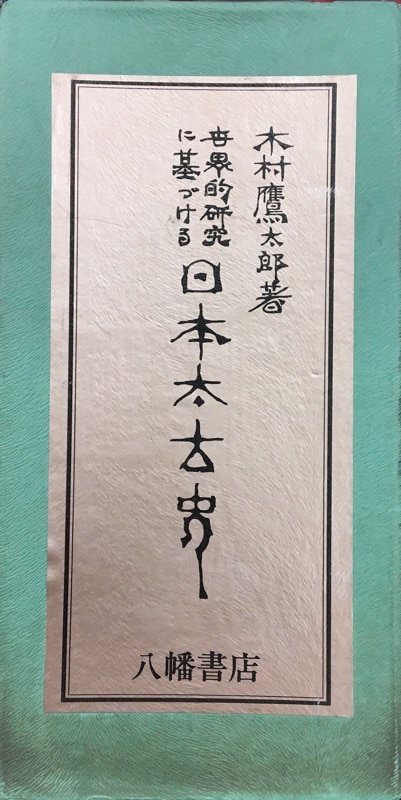 木村鷹太郎著
世界的研究
に基づける
日本太古史
八幡書店